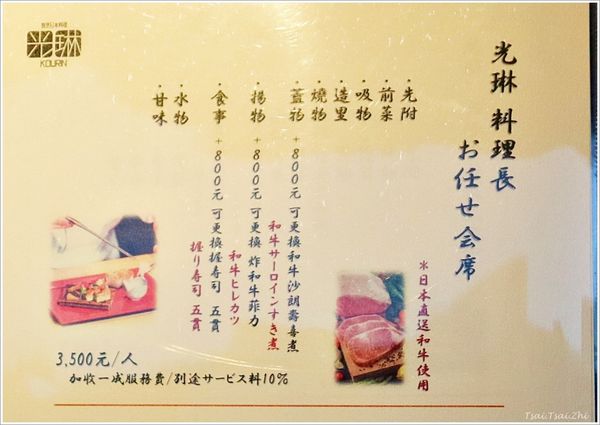 光琳
KOURIN
光琳 料理長
お任せ会席
・先附
・前菜
・吸物
・造里
・燒物
・蓋物 +800元 可更換和牛沙朗壽喜煮
和牛サーロインすき煮
・揚物 +800元 可更換 炸和牛菲力
和牛ヒレカツ
・食事 +800元 可更換握壽司 五貫
握り寿司 五貫
・水物
・甘味
※日本直送和牛使用
3,500元/人
加收一成服務費/別途サービス料10%
Tsai.Tsai.Zhi